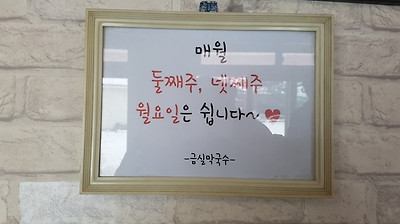 매월
둘째주, 넷째주
월요일은 쉽니다~ ♥
-금실막국수-